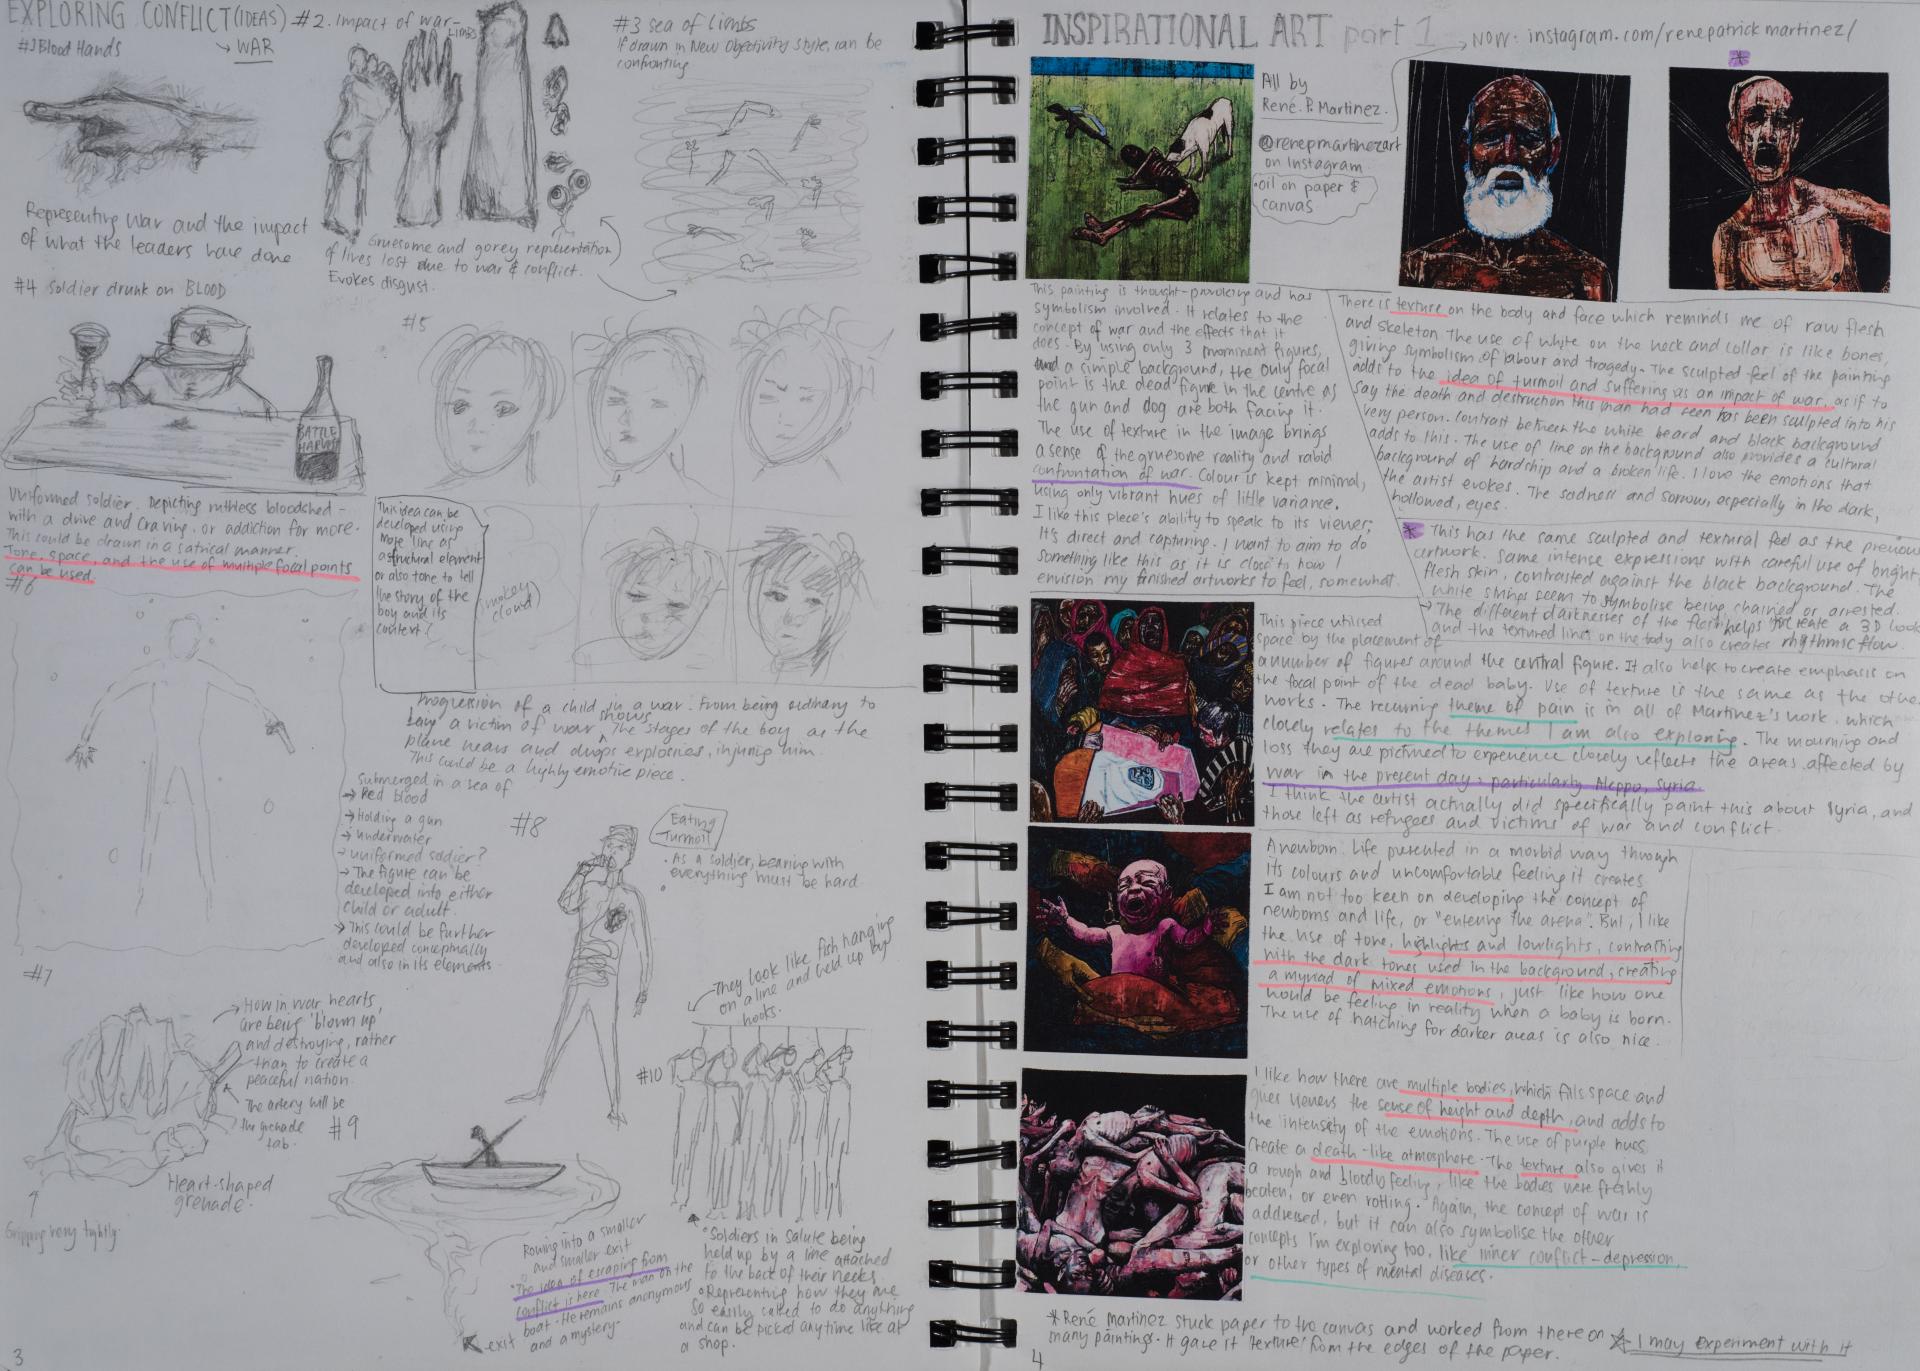 EXPLORING CONFLICT (IDEAS)
→ WAR
#1 Blood Hands
Representing war and the impact
of what the leaders have done
#2. Impact of war-
Limbs
Gruesome and gorey representation
of lives lost due to war & conflict.
Evokes disgust.
#3 sea of limbs
If drawn in New Objectivity style, can be
confronting
#4 Soldier drunk on BLOOD
BATTLE
HARVEST
Uniformed soldier. Depicting ruthless bloodshed -
with a drive and craving. or addiction for more.
This could be drawn in a satrical manner.
Tone, space, and the use of multiple focal points
can be used.
#5
This idea can be
developed using
more line as
a structural element
or also tone to tell
the story of the
boy and its
context!
(smokey
cloud)
Progression of a child in a war: From being ordinary to
being a victim of war shows the stages of the boy as the
plane nears and drops explosives, injuring him.
This could be a highly emotive piece.
#6
submerged in a sea of
→ Red blood
→ Holding a gun
→ underwater
→ uniformed soldier?
→ The figure can be
developed into either
child or adult.
→ This could be further
developed conceptually
and also in its elements.
#7
→ How in war, hearts
are being 'blown up'
and destroying, rather
than to create a
peaceful nation.
The artery will be
the grenade
tab.
Heart-shaped
grenade.
Gripping very tightly
#8
Eating
Turmoil
• As a soldier, bearing with
everything must be hard.
#9
Rowing into a smaller
and smaller exit
• The idea of escaping from
conflict is here. The man on the
boat. He remains anonymous
and a mystery.
exit
#10
They look like fish hanging
on a line and held up by
hooks.
• Soldiers in salute being
held up by a line attached
to the back of their necks.
• Representing how they are
so easily called to do anything
and can be picked anytime like at
a shop.
3
INSPIRATIONAL ART part 1
→ NOW: instagram.com/renepatrickmartinez/
All by
René. P. Martinez.
@renepmartinezart
on Instagram
• Oil on paper &
canvas
This painting is thought-provoking and has
symbolism involved. It relates to the
concept of war and the effects that it
does. By using only 3 prominent figures,
and a simple background, the only focal
point is the dead figure in the centre as
the gun and dog are both facing it.
The use of texture in the image brings
a sense of the gruesome reality and rabid
confrontation of war. Colour is kept minimal,
using only vibrant hues of little variance.
I like this piece's ability to speak to its viewer;
It's direct and capturing. I want to aim to do
something like this as it is close to how I
envision my finished artworks to feel, somewhat.
There is texture on the body and face which reminds me of raw flesh
and skeleton. The use of white on the neck and collar is like bones,
giving symbolism of labour and tragedy. The sculpted feel of the painting
adds to the idea of turmoil and suffering as an impact of war, as if to
say the death and destruction this man had seen has been sculpted into his
very person. Contrast between the white beard and black background
adds to this. The use of line on the background also provides a cultural
background of hardship and a broken life. I love the emotions that
the artist evokes. The sadness and sorrow, especially in the dark,
hollowed, eyes.
* This has the same sculpted and textural feel as the previous
artwork. Same intense expressions with careful use of bright
flesh skin, contrasted against the black background. The
white strings seem to symbolise being chained or arrested.
→ The different darknesses of the flesh helps create a 3D look
and the textured lines on the body also creates rhythmic flow.
This piece utilised
space by the placement of
a number of figures around the central figure. It also helps to create emphasis on
the focal point of the dead baby. Use of texture is the same as the other
works. The recurring theme of pain is in all of Martinez's work, which
closely relates to the themes I am also exploring. The mourning and
loss they are pictured to experience closely reflects the areas affected by
war in the present day: particularly Aleppo, Syria.
I think the artist actually did specifically paint this about Syria, and
those left as refugees and victims of war and conflict.
A newborn. Life presented in a morbid way through
its colours and uncomfortable feeling it creates.
I am not too keen on developing the concept of
newborns and life, or "entering the arena". But, I like
the use of tone, highlights and lowlights, contrasting
with the dark tones used in the background, creating
a myriad of mixed emotions, just like how one
would be feeling in reality when a baby is born.
The use of hatching for darker areas is also nice.
I like how there are multiple bodies, which fills space and
gives viewers the sense of height and depth, and adds to
the intensity of the emotions. The use of purple hues
create a death-like atmosphere. The texture also gives it
a rough and bloody feeling, like the bodies were freshly
beaten, or even rotting. Again, the concept of war is
addressed, but it can also symbolise the other
concepts I'm exploring too, like inner conflict - depression,
or other types of mental diseases.
* René Martinez stuck paper to the canvas and worked from there on
many paintings. It gave it 'texture' from the edges of the paper.
☆ I may experiment with it
4